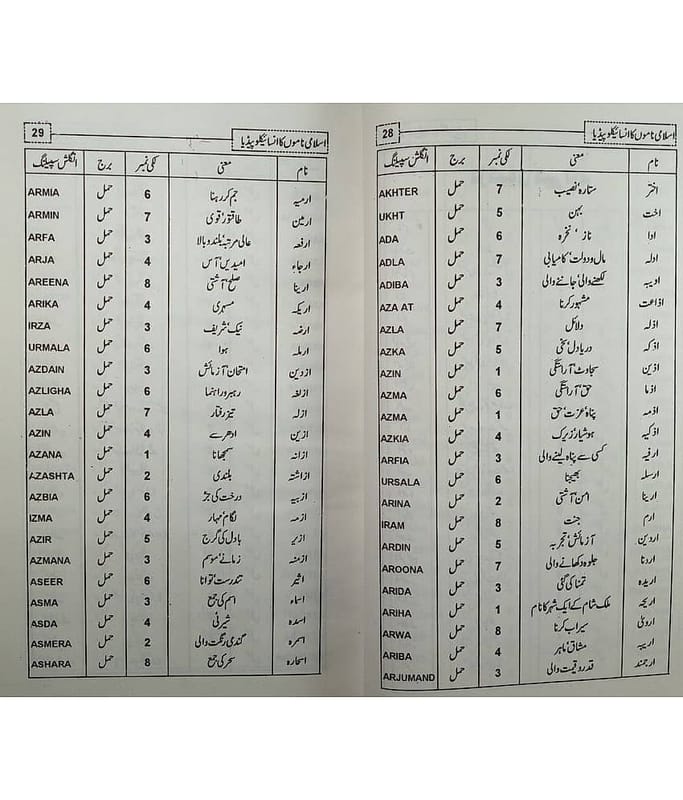 28 اسلامی ناموں کا انسائیکلوپیڈیا
نام معنی لکی نمبر برج انگلش سپیلنگ
اختر ستارہ نصیب 7 حمل AKHTER
اخت بہن 5 حمل UKHT
ادا ناز' نخرہ 6 حمل ADA
ادلہ مال و دولت' کامیابی 7 حمل ADLA
ادیبہ لکھنے والی' جاننے والی 3 حمل ADIBA
اذاعت مشہور کرنا 4 حمل AZA AT
اذلہ دلائل 7 حمل AZLA
اذکہ دریا دل' سخی 5 حمل AZKA
اذین سجاوٹ' 1 حمل AZIN
اذما حق' 6 حمل AZMA
اذمہ پناہ' عزت' حق 1 حمل AZMA
اذکیہ ہوشیار' زیرک 4 حمل AZKIA
ارفیہ کسی سے پناہ لینے والی 3 حمل ARFIA
ارسلہ بھیجنا 6 حمل URSALA
ارینا امن' آشتی 2 حمل ARINA
ارم جنت 8 حمل IRAM
اردین آزمائش' تجربہ 5 حمل ARDIN
ارونا جلوہ دکھانے والی 7 حمل AROONA
اریدہ تمنا کی گئی 3 حمل ARIDA
اریحہ ملک شام کے ایک شہر کا نام 1 حمل ARIHA
ارویٰ سیراب کرنا 8 حمل ARWA
اریبہ مشاق' ماہر 4 حمل ARIBA
ارجمند قدر و قیمت والی 3 حمل ARJUMAND
29 اسلامی ناموں کا انسائیکلوپیڈیا
نام معنی لکی نمبر برج انگلش سپیلنگ
ارمیہ جم کر رہنا 6 حمل ARMIA
ارمین طاقتور' قوی 7 حمل ARMIN
ارفعہ عالی مرتبہ' بلند و بالا 3 حمل ARFA
ارجاء امیدیں' آس 4 حمل ARJA
ارینا صلح' آشتی 8 حمل AREENA
اریکہ مسہری 4 حمل ARIKA
ارضہ نیک' شریف 3 حمل IRZA
ارملہ ہوا 6 حمل URMALA
ازدین امتحان' آزمائش 3 حمل AZDAIN
ازلغہ رہبر و راہنما 6 حمل AZLIGHA
ازلہ تیز رفتار 7 حمل AZLA
ازین ادھر سے 4 حمل AZIN
ازانہ سمجھانا 1 حمل AZANA
ازاشتہ بلندی 2 حمل AZASHTA
ازبیہ درخت کی جڑ 6 حمل AZBIA
ازمہ لگام' مہار 4 حمل IZMA
ازیر بادل کی گرج 5 حمل AZIR
ازمنہ زمانے' موسم 3 حمل AZMANA
اثیر تندرست' توانا 6 حمل ASEER
اسماء اسم کی جمع 3 حمل ASMA
اسدہ شیرنی 4 حمل ASDA
اسمرہ گندمی رنگت والی 2 حمل ASMERA
اسحارہ سحر کی جمع 8 حمل ASHARA